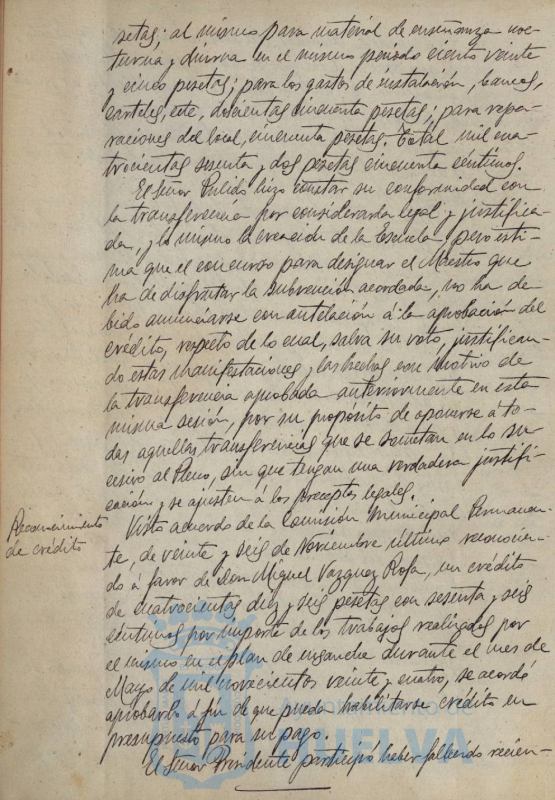 setas; al mismo para material de enseñanza noc-
turna y diurna en el mismo periodo ciento veinte
y cinco pesetas; para los gastos de instalación, bancos,
carteles, etc, doscientas cincuenta pesetas; para repa-
raciones del local, cincuenta pesetas. Total mil cua-
trocientas sesenta y dos pesetas cincuenta céntimos.
El Señor Pulido hizo constar su conformidad con
la transferencia por considerarla legal y justifica-
da, y lo mismo la creación de la Escuela pero esti-
ma que el concurso para designar el Maestro que
ha de disfrutar la subvención acordada, no ha de-
bido anunciarse con antelación a la aprobación del
crédito, respecto de lo cual, salva su voto, justifican-
do estas manifestaciones y las hechas con motivo de
la transferencia aprobada anteriormente en esta
misma sesión, por su propósito de oponerse á to-
das aquellas transferencias que se sometan en lo su-
cesivo al Pleno, sin que tengan una verdadera justifi-
cación y se ajusten á los preceptos legales.
Reconocimiento
de crédito
Visto acuerdo de la Comisión Municipal Permanen-
te, de veinte y seis de Noviembre último reconocien-
do á favor de Don Miguel Vazquez Rosa, un crédito
de cuatrocientas diez y seis pesetas con sesenta y seis
céntimos por importe de los trabajos realizados por
el mismo en el plan de ensanche durante el mes de
Mayo de mil novecientos veinte y cuatro, se acordó
aprobarlo á fin de que pueda habilitarse crédito en
presupuesto para su pago.
El Señor Presidente participó haber fallecido recien-
HUELVA